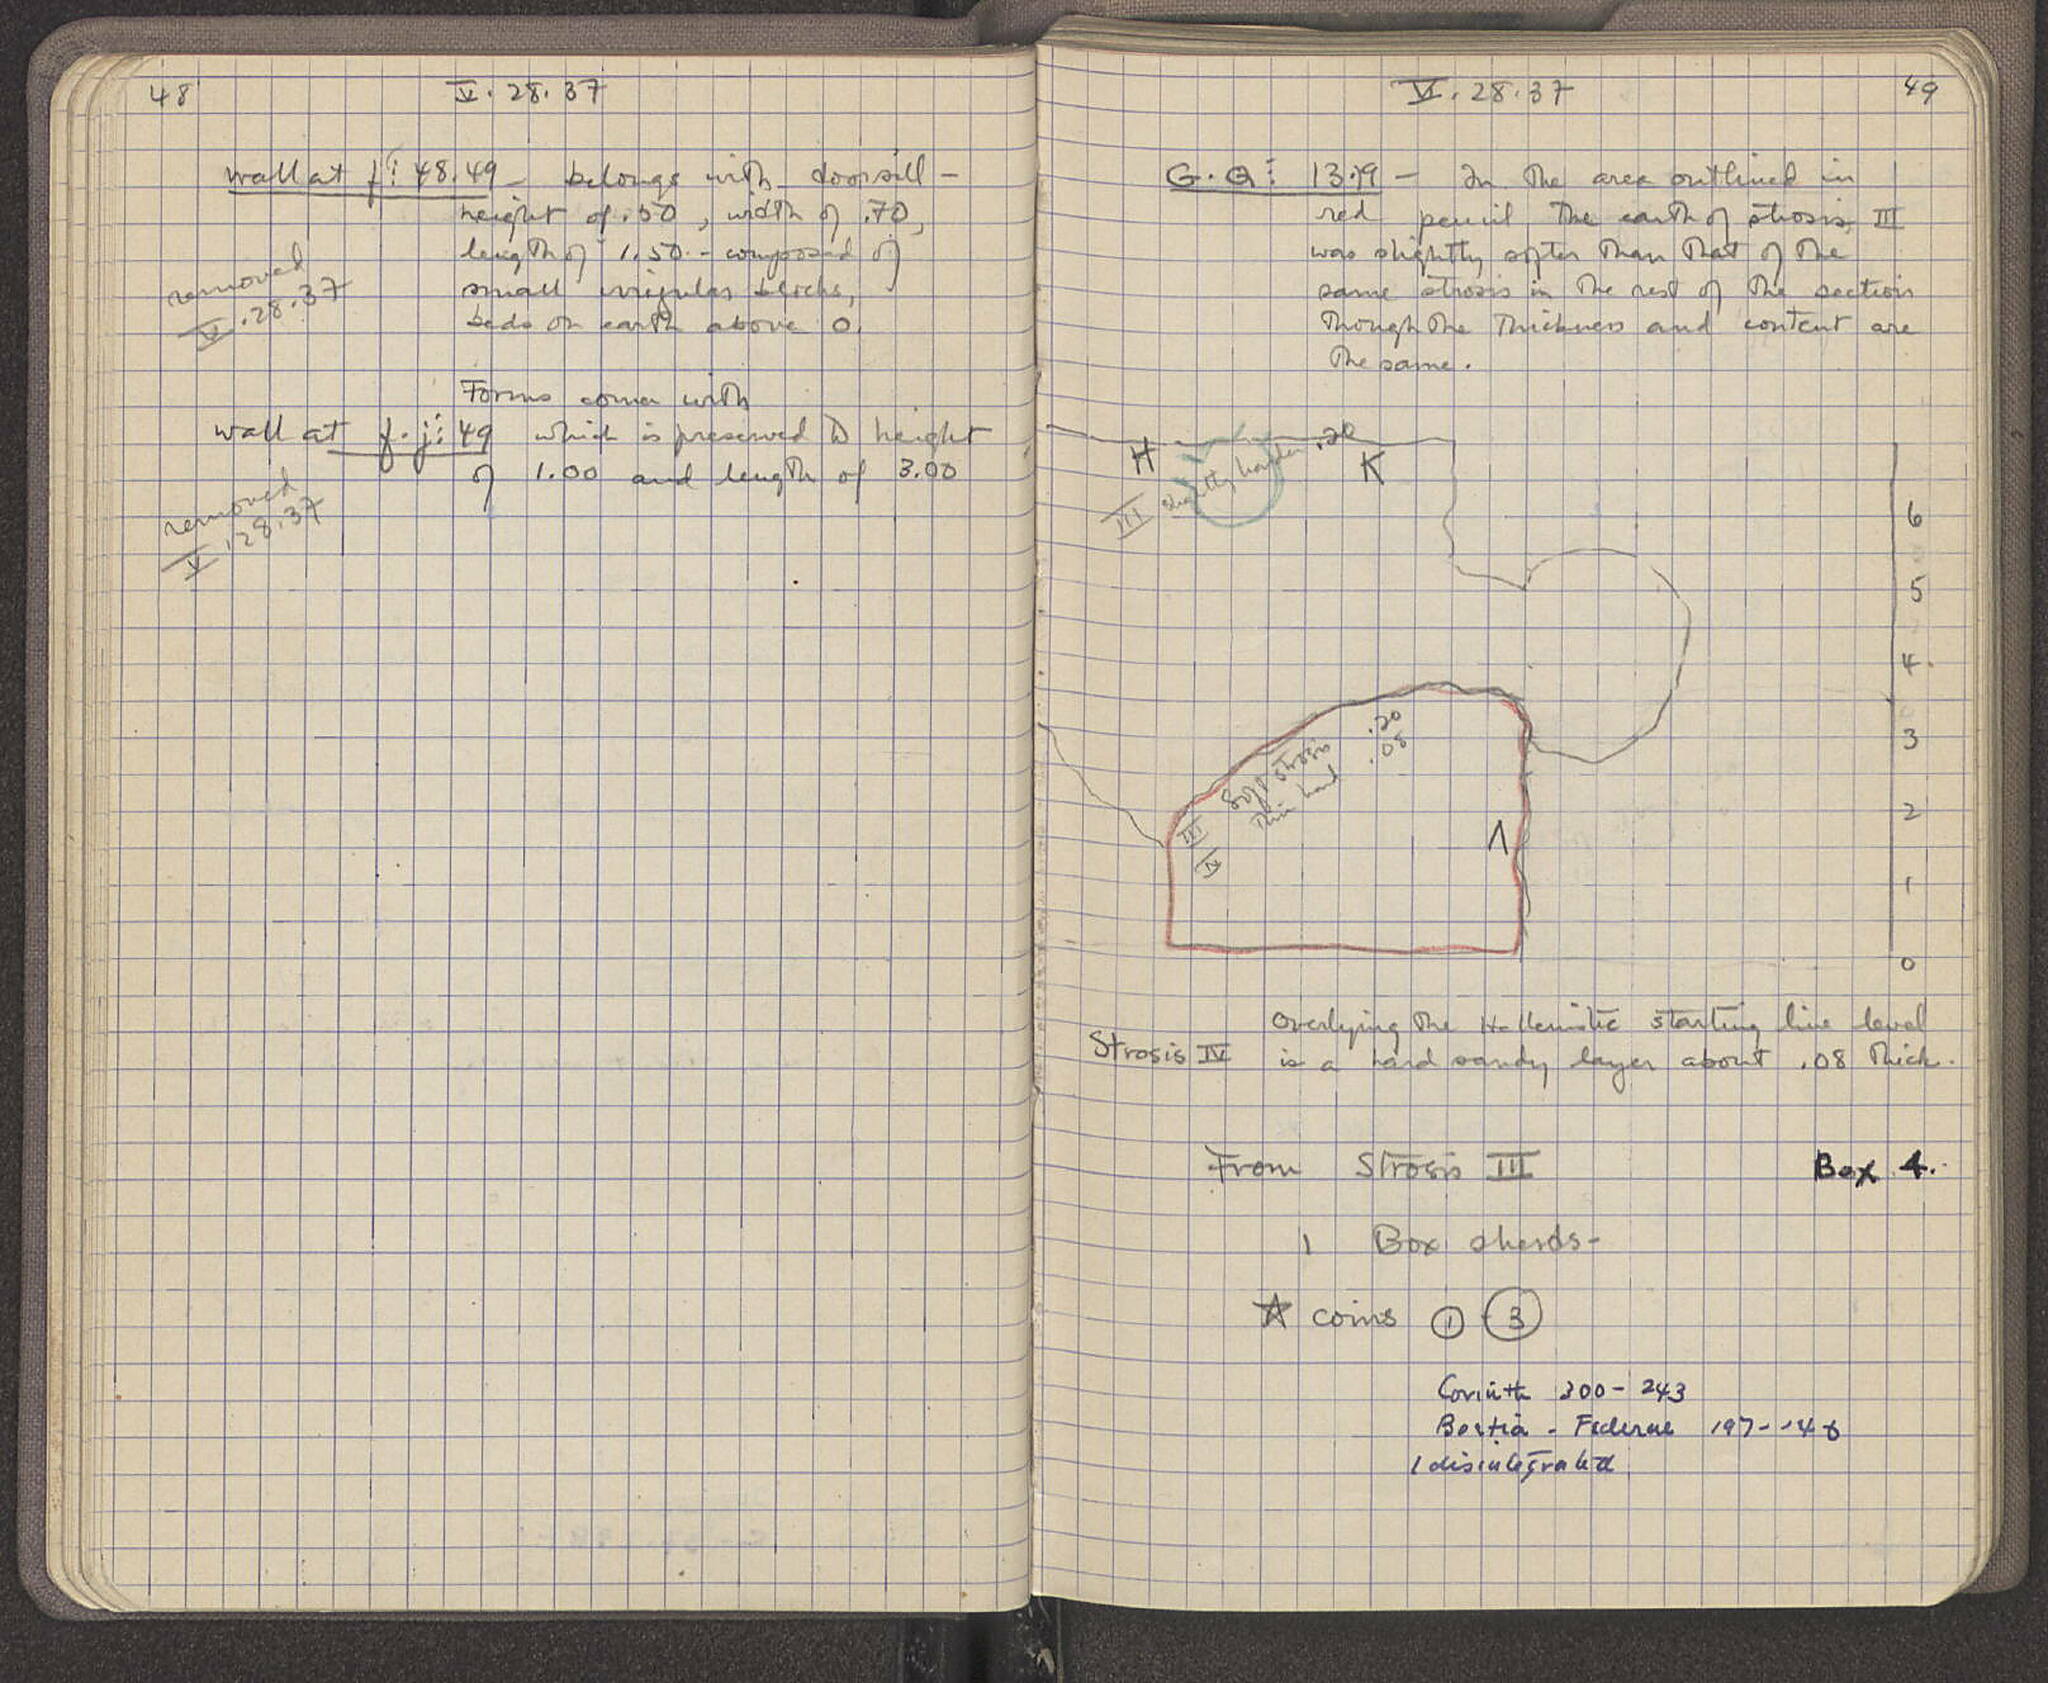 48
V. 28. 37
wall at f: 48.49 - belongs with doorsill -
height of .50, width of .70,
length of 1.50 - composed of
small irregular blocks,
beds on earth above 0.
removed
V. 28. 37
Forms corner with
wall at f. j: 49 which is preserved to height
of 1.00 and length of 3.00
removed
V. 28. 37
VI. 28. 37
49
G. : 13.19 - In the area outlined in
red pencil the earth of strosis III
was slightly softer than that of the
same strosis in the rest of the section
though the thickness and content are
the same.
H
K
III slightly harder .20
6
5
4.
3
2
1
0
III Soft strosis .20
IV Thin hard .08
Λ
Overlying the Hellenistic starting line level
Strosis IV is a hard sandy layer about .08 thick.
From Strosis III
Box 4.
1 Box sherds-
☆ coins 1 3
Corinth 300 - 243
Boetia - Federal 197 - 146
1 disintegrated